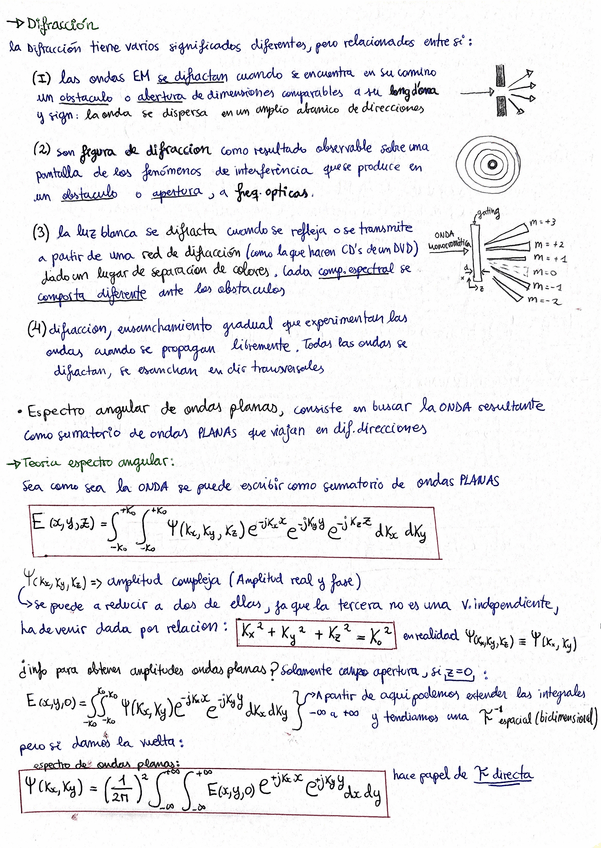 → Difracción
la Difracción tiene varios significados diferentes, pero relacionados entre sí:
(1) las ondas EM se difractan cuando se encuentra en su camino
un obstaculo o abertura de dimensiones comparables a su long d'ona
y sign: la onda se dispersa en un amplio abanico de direcciones
(2) son figura de difraccion como resultado observable sobre una
pantalla de los fenómenos de interferència que se produce en
un obstaculo o apertura, a freq. opticas.
(3) la luz blanca se difracta cuando se refleja o se transmite
a partir de una red de difracción (como la que hacen CD's de un DVD)
dado un lugar de separacion de colores. Cada comp. espectral se
comporta diferente ante los obstaculos
grating
ONDA
monocromática
m=+3
m=+2
m=+1
m=0
m=-1
m=-2
x
z
(4) difraccion, ensanchamiento gradual que experimentan las
ondas cuando se propagan libremente. Todas las ondas se
difractan, se esanchan en dir transversales
• Espectro angular de ondas planas, consiste en buscar la ONDA resultante
como sumatorio de ondas PLANAS que viajan en dif. direcciones
→ Teoria espectro angular:
Sea como sea la ONDA se puede escribir como sumatorio de ondas PLANAS
E (x,y,z) = ∫_{-K₀}^{+K₀} ∫_{-K₀}^{+K₀} Ψ(Kx, Ky, Kz) e^{-jKx x} e^{-jKy y} e^{-jKz z} dKx dKy
Ψ(Kx, Ky, Kz) => amplitud compleja (Amplitud real y fase)
↳ se puede a reducir a dos de ellas, ya que la tercera no es una v. independiente,
ha de venir dada por relacion: Kx² + Ky² + Kz² = K₀² en realidad Ψ(Kx,Ky,Kz) ≡ Ψ(Kx, Ky)
¿info para obtener amplitudes ondas planas? Solamente campo apertura, si z=0, :
E(x,y,0) = ∫∫_{-K₀ -K₀}^{K₀ K₀} Ψ(Kx, Ky) e^{-jKx x} e^{-jKy y} dKx dKy } → A partir de aqui podemos extender las integrales
-∞ a +∞ y tendiamos una F⁻¹ espacial (bidimensional)
pero si damos la vuelta:
espectro de ondas planas:
Ψ(Kx, Ky) = (1/2π)² ∫_{-∞}^{+∞} ∫_{-∞}^{+∞} E(x,y,0) e^{+jKx x} e^{+jKy y} dx dy hace papel de F directa